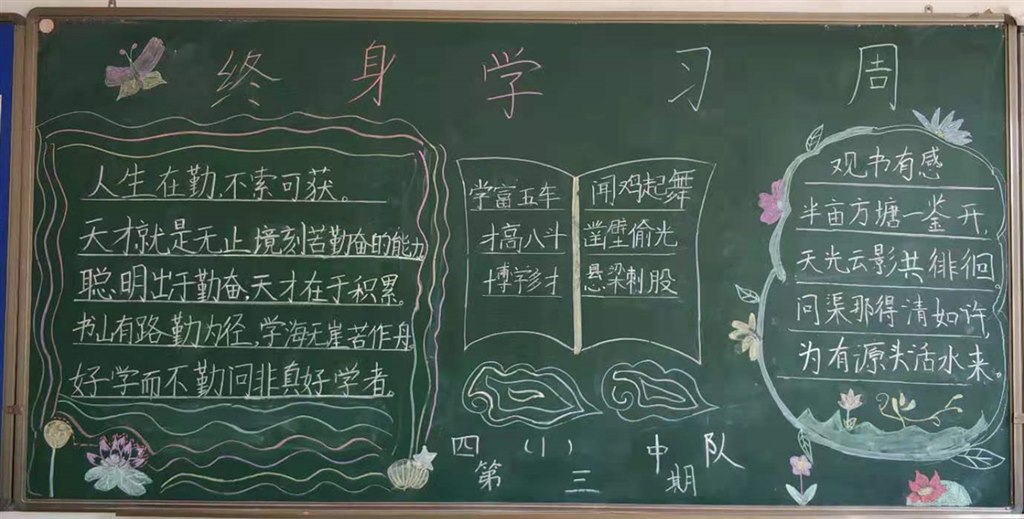 终身学习周
人生在勤,不索可获。
天才就是无止境刻苦勤奋的能力
聪明出于勤奋,天才在于积累。
书山有路勤为径,学海无崖苦作舟
好学而不勤问非真好学者。
学富五车
才高八斗
博学多才
闻鸡起舞
凿壁偷光
悬梁刺股
观书有感
半亩方塘一鉴开,
天光云影共徘徊。
问渠那得清如许,
为有源头活水来。
四(1)中队
第三期